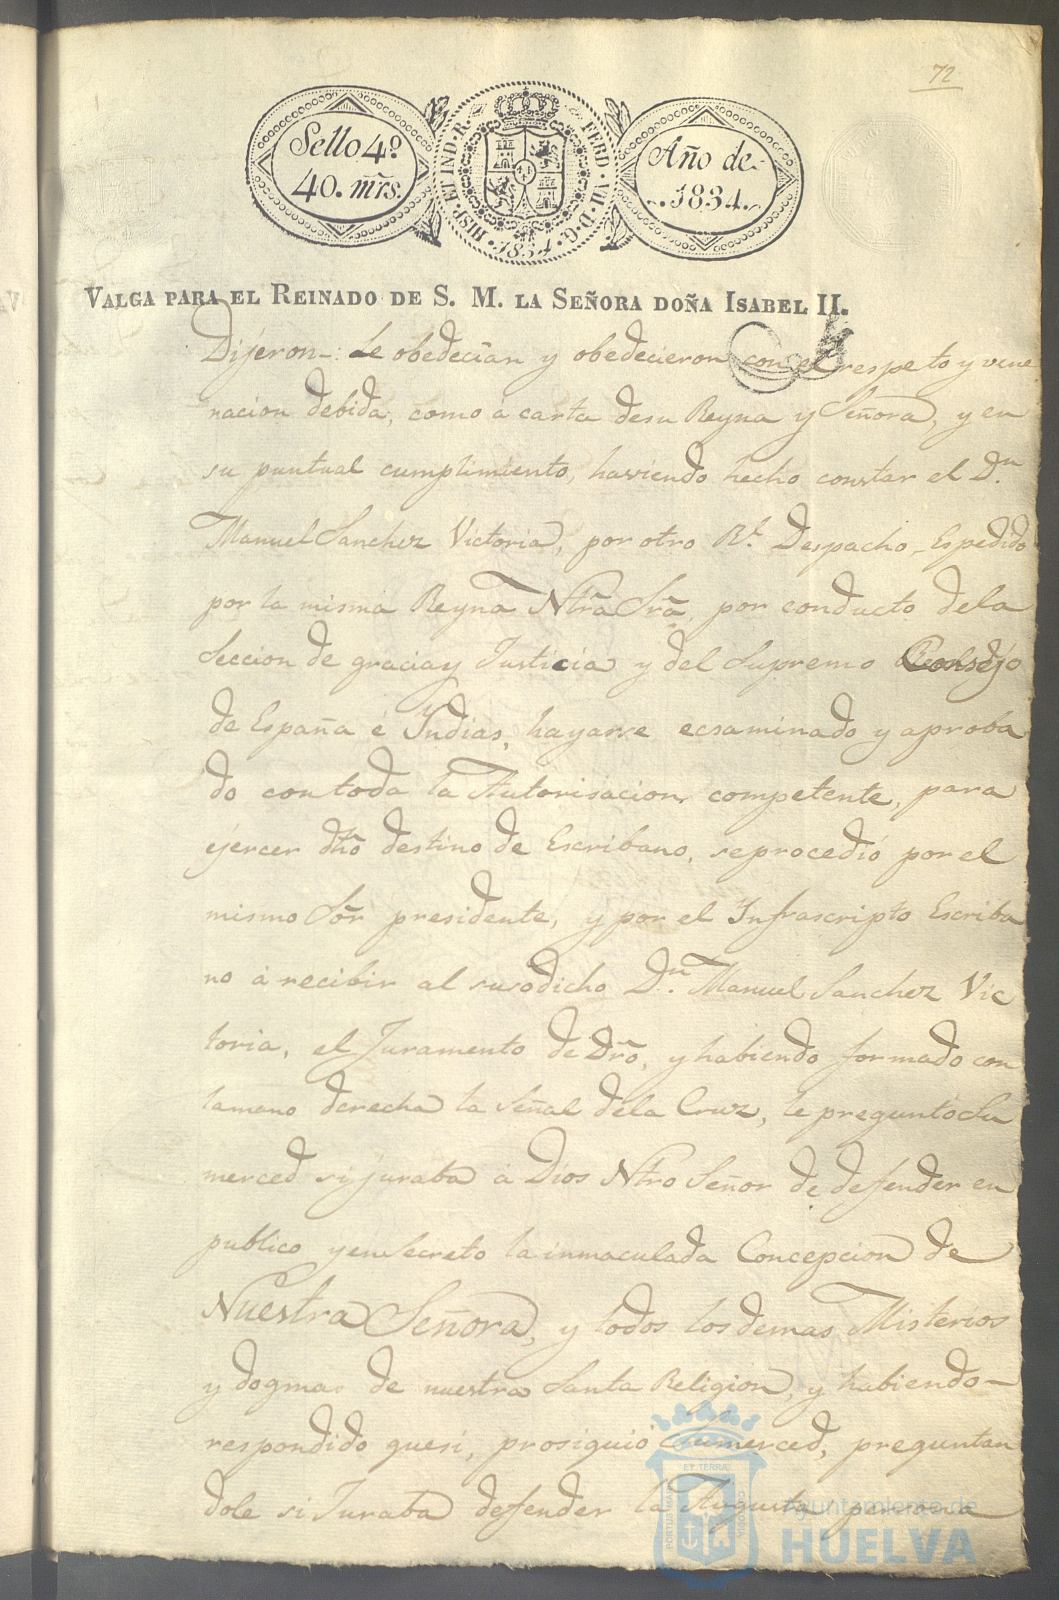 72
Sello 4.º
40. mrs.
HISP. ET IND. R.
FERD. VII. D. G.
1834.
Año de
1834.
VALGA PARA EL REINADO DE S. M. LA SEÑORA DOÑA ISABEL II.
Dijeron: Le obedecian y obedecieron con el respeto y vene
racion debida, como á carta desu Reyna y Señora, y en
su puntual cumplimiento, haviendo hecho constar el Dn.
Manuel Sanchez Victoria, por otro Rl. Despacho Espedido
por la misma Reyna Ntrã Srã, por conducto dela
Seccion de gracia y Justicia y del Supremo Consejo
de España é Yndias, hayarse ecsaminado y aproba
do con toda la Autorisacion competente, para
ejercer dhõ destino de Escribano, se procedió por el
mismo Sõr presidente, y por el Infrascripto Escriba
no á recibir al susodicho Dn. Manuel Sanchez Vic
toria, el Juramento de Drõ, y habiendo formado con
la mano derecha la Señal dela Cruz, le preguntó Su
merced si juraba á Dios Ntro Señor de defender en
publico y en Secreto la inmaculada Concepcion de
Nuestra Señora, y todos los demas Misterios
y dogmas de nuestra Santa Religion, y habiendo
respondido que si, prosiguió Sumerced, preguntan
dole si Juraba defender la Augusta persona
PORTUS MARIS
ET TERRÆ
CUSTODIA
Ayuntamiento de
HUELVA